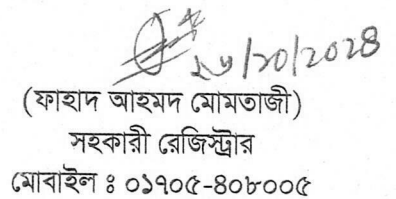 ২৮/১০/২০২৪
(ফাহাদ আহমদ মোমতাজী)
সহকারী রেজিস্ট্রার
মোবাইল ঃ ০১৭০৫-৪০৮০০৫